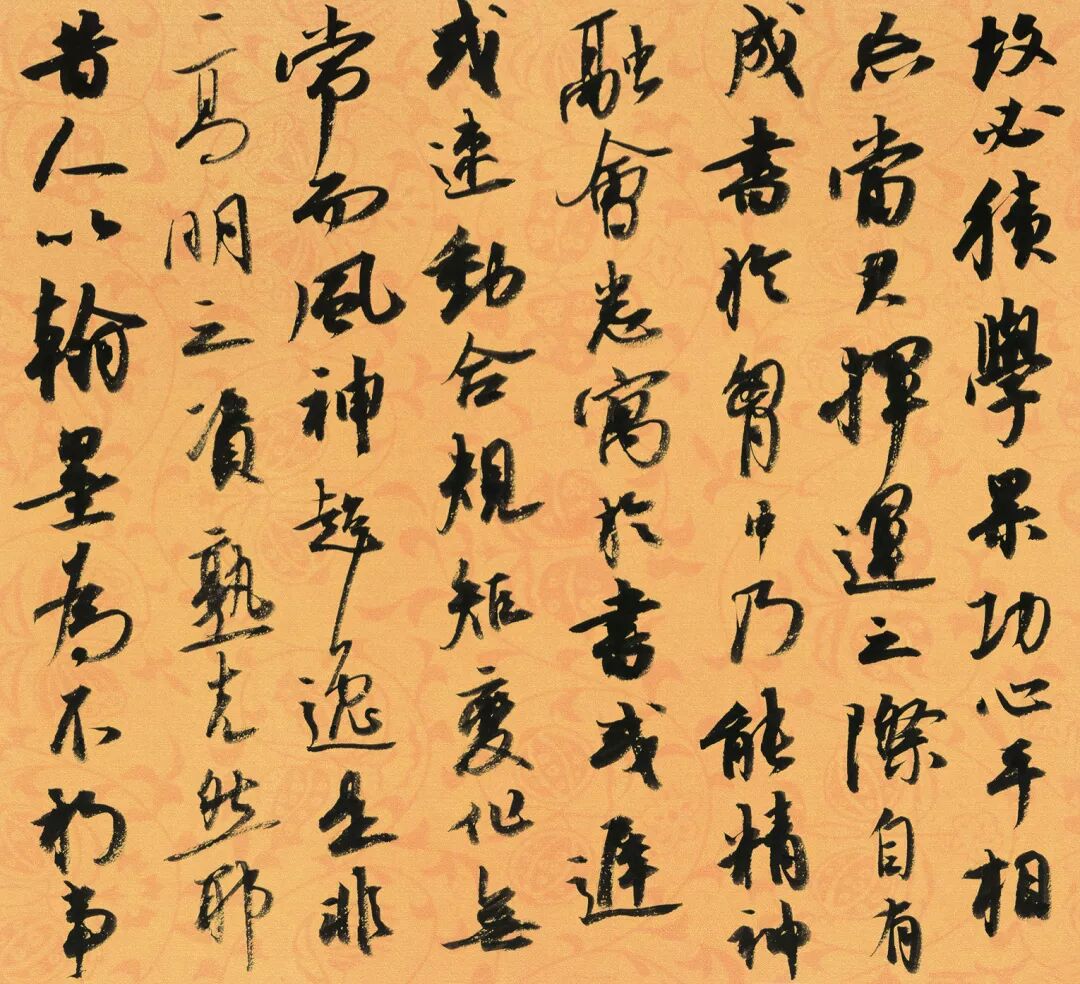 故必積學累功心手相
忘當其揮運之際自有
成書於胷中乃能精神
融會悉寓於書或遲
或速動合規矩變化無
常而風神超逸是非
高明之資孰克然耶
昔人以翰墨為不朽事